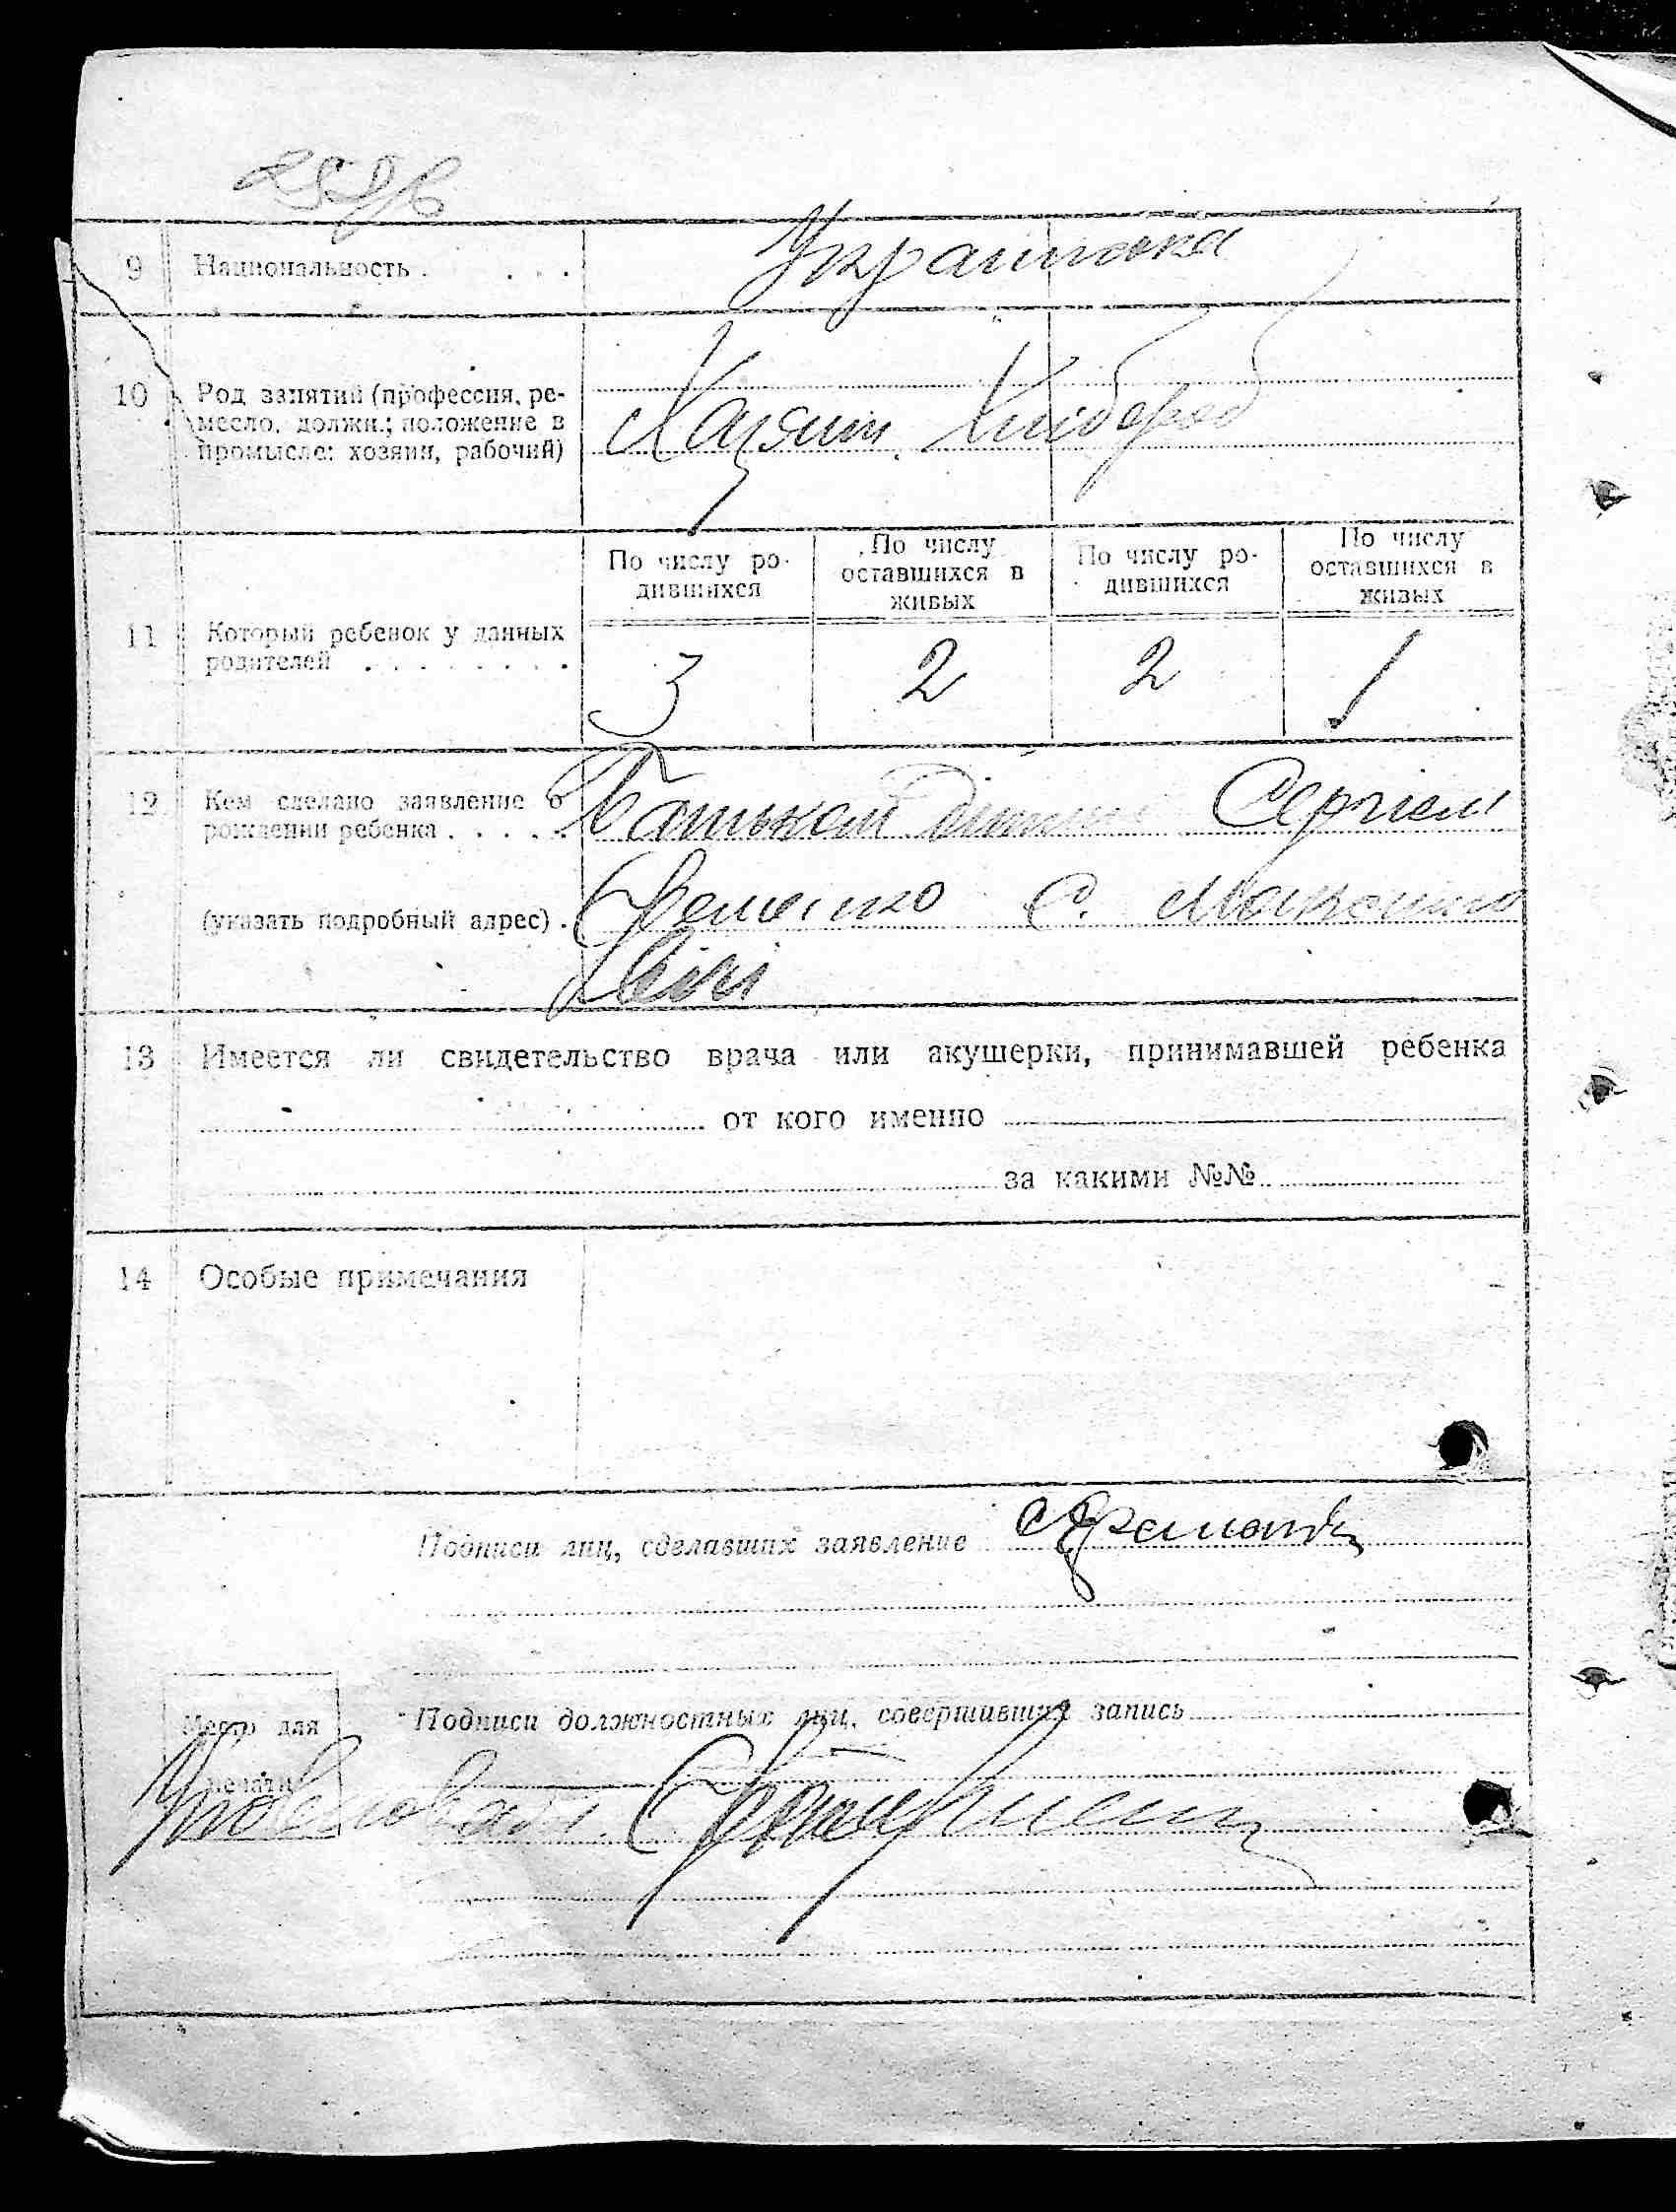 9 Национальность . . . . Українська
10 Род занятий (профессия, ре-
месло, должн.; положение в
промысле: хозяин, рабочий)
Хазяин Хлібороб
По числу ро-
дившихся
По числу
оставшихся в
живых
По числу ро-
дившихся
По числу
оставшихся в
живых
11 Который ребенок у данных
родителей . . . . . . . .
3 2 2 1
12 Кем сделано заявление о
рождении ребенка . . . . .
Батьком дитини Сергієм
(указать подробный адрес) .
С.
13 Имеется ли свидетельство врача или акушерки, принимавшей ребенка
от кого именно
за какими №№
14 Особые примечания
Подписи лиц, сделавших заявление
Место для
печати
Подписи должностных лиц, совершивших запись